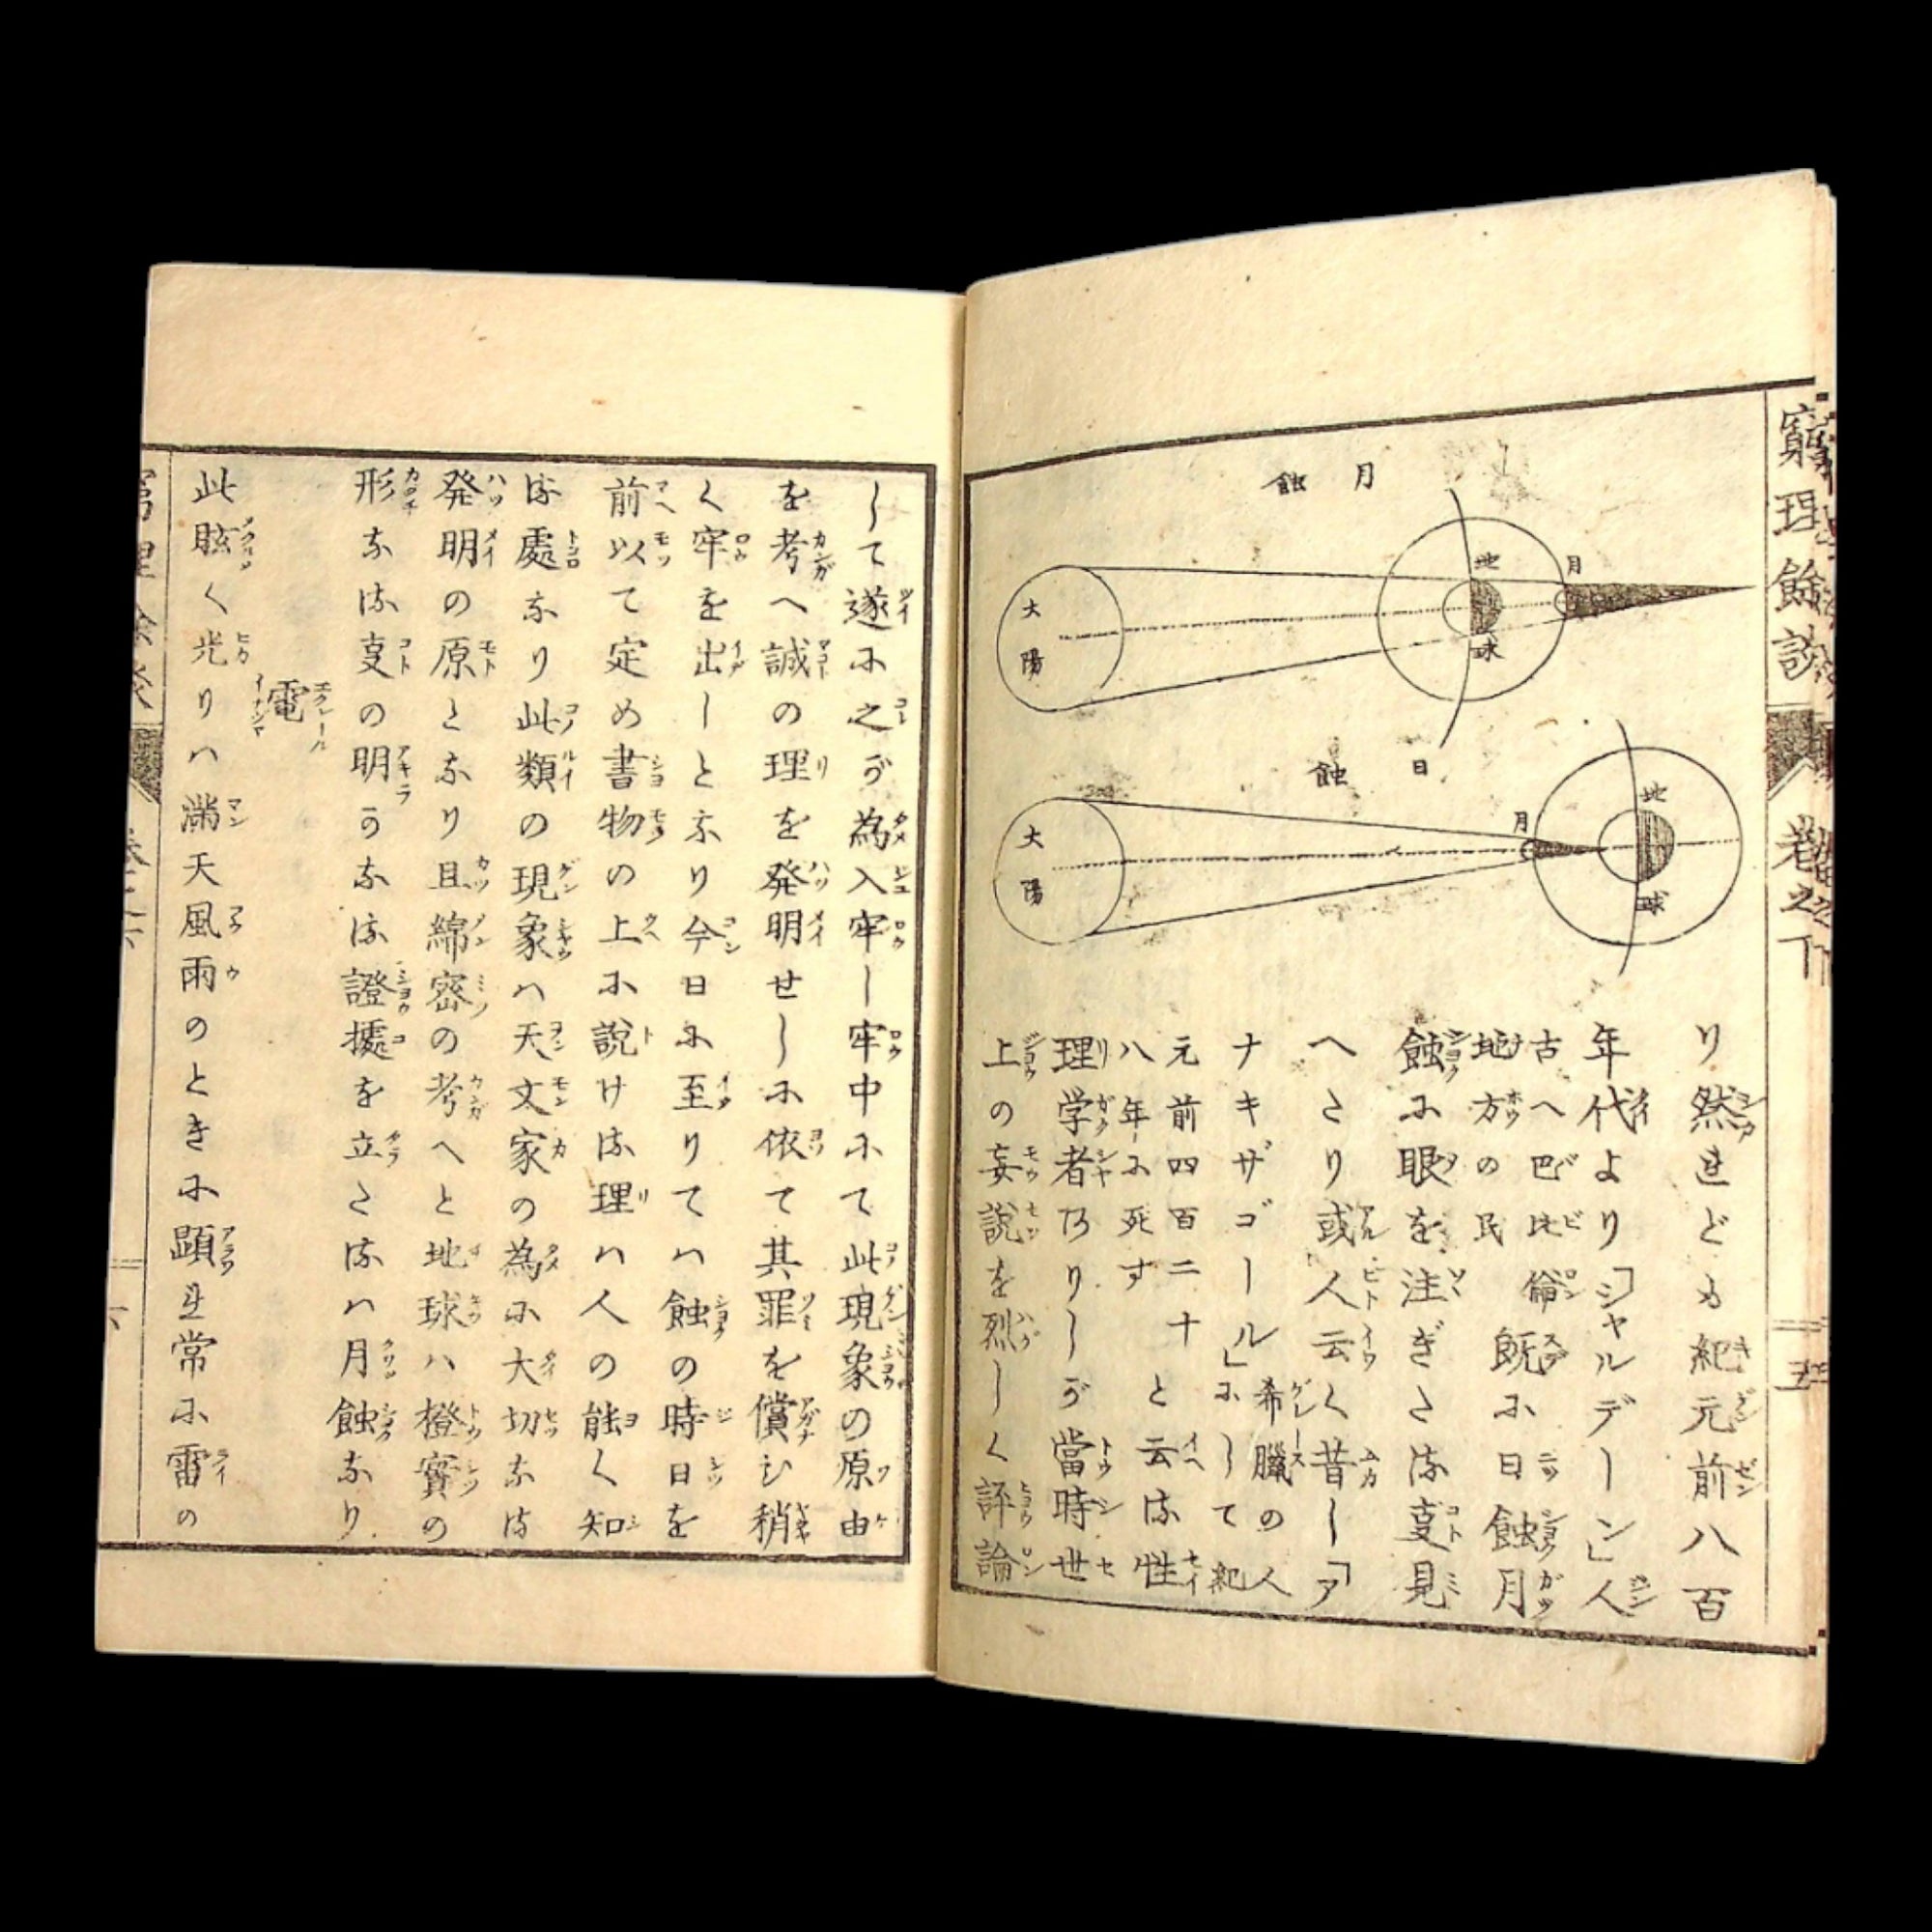 窮理餘談
巻之下
五
月蝕
大陽
地球
月
日蝕
大陽
地球
月
り然れども紀元前八百
年代より「シャルデーン」人
古へ巴比倫
地方の民
既に日蝕月
蝕に眼を注ぎたる事見
へたり或人云く昔し「ア
ナキザゴール」
希臘の人
にして紀
元前四百二十
八年に死す
と云る性
理学者乃りしが當時世
上の妄説を烈しく評論
して遂に之が為入牢し牢中にて此現象の原由
を考へ誠の理を発明せしに依て其罪を償ひ稍
く牢を出しとなり今日に至りてハ蝕の時日を
前以て定め書物の上に説ける理ハ人の能く知
る處なり此類の現象ハ天文家の為に大切なる
発明の原となり且綿密の考へと地球ハ橙實の
形なる事の明かなる證據を立たるハ月蝕なり
電
此眩く光りハ満天風雨のときに顕れ常に雷の